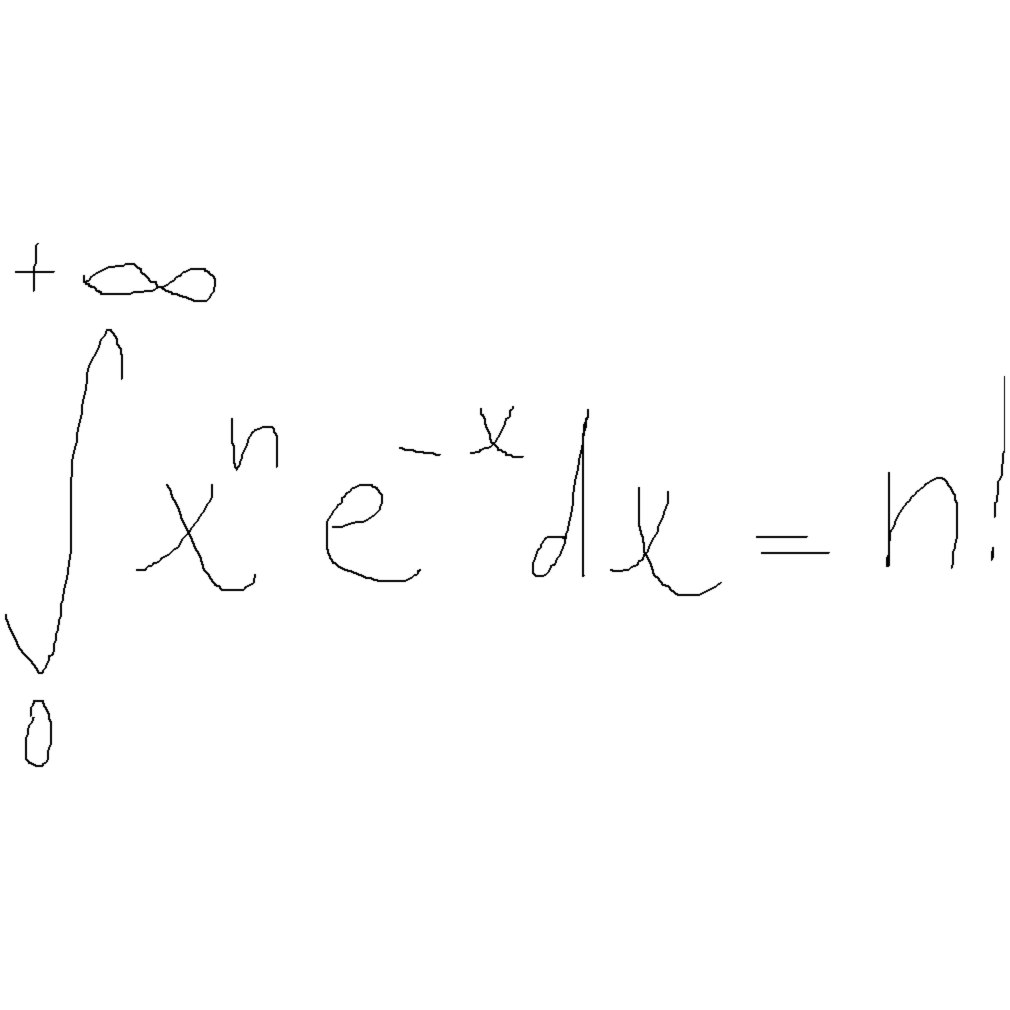 $\int_{0}^{+\infty} x^{n} e^{-x} dx = n!$